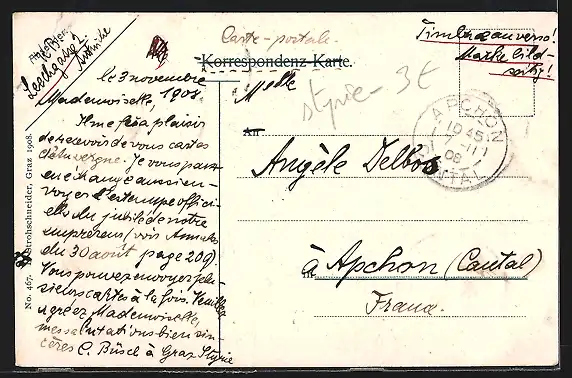 Carte-postale.
Korrespondenz-Karte.
Timbre au verso!
Marke bild-
seitig!
Leechgasse 2
Autriche
le 3 novembre
1908.
Mademoiselle,
Il me fera plaisir
de recevoir de vous cartes
d'Auvergne. Je vous puis
en échange aussi en-
voyer l'estampe offici-
elle du jubilé de notre
empereur (vois Annales
du 30 août page 209)
Vous pouvez envoyer plu-
sieurs cartes à la fois. Veuillez
agréez Mademoiselle,
mes salutations bien sin-
cères C. Büsch à Graz Styrie
No. 467. Strohschneider, Graz 1908.
Melle
styrie - 3 €
An
Angèle Delbos
APCHON
19 45
08
CANTAL
in
à Apchon (Cantal)
France.